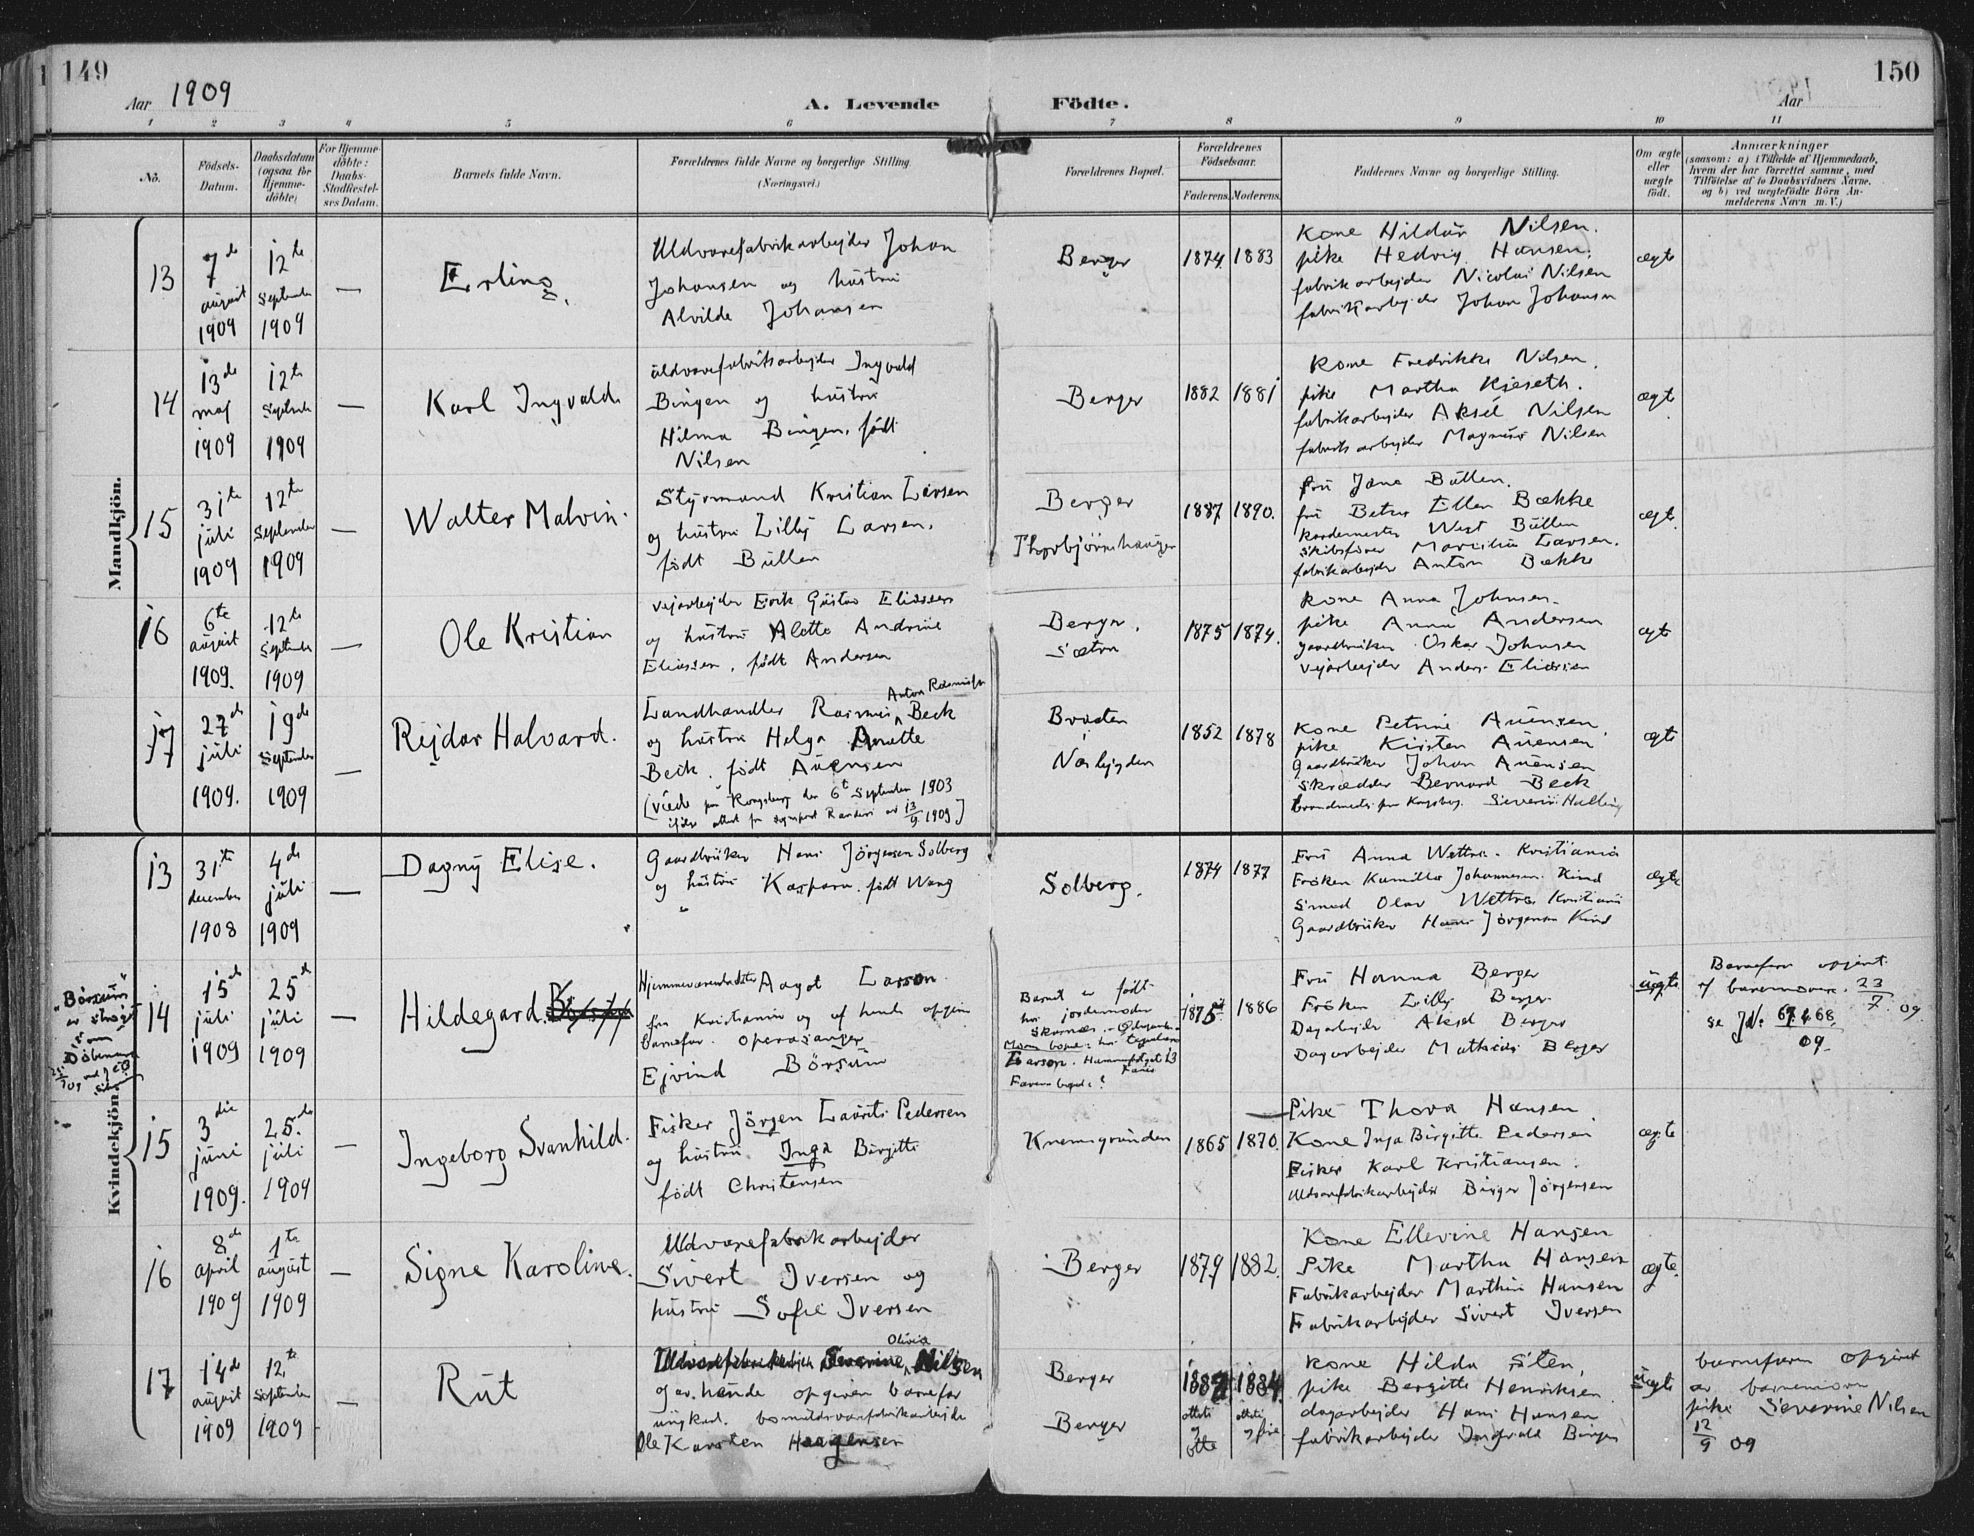 149
150
Aar 1909
A. Levende
Födte.
Aar
1 2 3 4 5 6 7 8 9 10 11
No.
Födsels-Datum.
Daabsdatum (ogsaa for Hjemme-döbte)
For Hjemme-döbte: Daabs-Stadfæstel-ses Datum.
Barnets fulde Navn.
Forældrenes fulde Navne og borgerlige Stilling.
(Næringsvei.)
Forældrenes Bopæl.
Forældrenes Födselsaar.
Faderens. Moderens.
Faddernes Navne og borgerlige Stilling.
Om ægte eller uægte födt.
Anmærkninger
(saasom: a) i Tilfælde af Hjemmedaab,
hvem der har forrettet samme, med
Tilföielse af to Daabsvidners Navne.
og b) ved uægtefödte Börn An-
melderens Navn m. V.)
Mandkjön.
13
7de august 1909
12te September 1909
—
Erling.
Uldvarefabrikarbejder Johan
Johansen og hüstrü
Alvilde Johansen
Berger
1874 1883
Kone Hildür Nilsen.
pike Hedvig Hansen.
fabrikarbejder Nicolai Nilsen
fabrikarbejder Johan Johansen
ægte
14
13de maj 1909
12te Septbr 1909
—
Karl Ingvald
üldvarefabriksarbejder Ingvald
Bingen og hüstrü
Hilma Bingen, født
Nilsen
Berger
1882 1881
Kone Fredrikke Nilsen.
pike Martha Kjeseth.
fabrikarbejder Aksel Nilsen
fabriksarbejder Magnüs Nilsen
ægte
15
31te jüli 1909
12te September 1909
—
Walter Malvin.
Styrmand Kristian Larsen
og hüstrü Lilly Larsen,
født Büllen
Berger
Thorbjörnshaugen
1887 1890.
frü Jana Büllen.
frü Ellen Bække
West Büllen
Skibsfører Larsen.
fabrikarbejder Anton Bække
ægt.
16
6te august 1909.
12te September 1909
—
Ole Kristian
Vejarbejder Erik Güstav Eliassen
og hüstrü Alette Andrine
Eliassen, født Andersen
Berger.
Sætra
1875 1874.
Kone Anna Johnsen.
pike Anna Andersen
gaardbrüker Oskar Johnsen
vejarbejder Anders Eliassen
ægte
17
27de jüli 1909.
19de September 1909
—
Rejdar Halvard.
Landhandler Rasmüs Anton Rasmüssen Beck
og hüstrü Helga Annette
Beck. født Aüensen
(viede paa Kongsberg den 6te September 1903
13/9 1909)
Braaten
Neslygden
1852 1878
Kone Petrine Aüensen.
pike Kirsten Aüensen
Gaardbrüker Johan Aüensen
Skrædder Bernard Beck
Severin Helling
ægte
Kvindekjön.
13
31te december 1908
4de jüli 1909
—
Dagny Elise.
Gaardbrüker Hans Jörgensen Solberg
og hüstrü Kaspara. født Wang
Solberg.
1874 1877
Frü Anna Wettre. Kristiania
Fröken Kamilla Johannesen. Kind
Smed Olav Wettre Kristiania
Gaardbrüker Hans Jörgensen Kind
ægte
"Börsüm"
er strøget
14
15de jüli 1909
25de jüli 1909
—
Hildegard.
Aagot Larson
fra Kristiania og af hende opgivn
barnefar. operasanger
Ejvind Börsüm
Barnet er født
hos jordemoder
Larson. Hammerfestgt 13
Farens bopæl: ?
1875 1886
Frü Hanna Berger
Fröken Lilly Berger
Dagarbejder Aksel Berger
Dagarbejder Mathias Berger
üægte
Barnefar opgivt.
af barnemoren. 23/7 09.
se JN: 67 & 68. 09.
15
3die jüni 1909.
25de jüli 1909
—
Ingeborg Svanhild.
Fisker Jörgen Laürits Pedersen
og hüstrü Inga Birgitte
født Christensen
Knemsgründen
1865 1870.
Pike Thora Hansen.
Kone Inga Birgitte Pedersen
Fisker Karl Kristiansen.
Uldvarefabrikarbejder Birger Jörgensen
ægte
16
8de april 1909
1te august 1909
—
Signe Karoline.
Uldvarefabrikarbejder
Sivert Iversen og
hüstrü Sofie Iversen
Berger
1879 1882.
Kone Ellevine Hansen
Pike Martha Hansen
Fabrikarbejder Marthin Hansen
Fabrikarbejder Sivert Iversen
ægte.
17
14de august 1909
12te September 1909
—
Rüt
Uldvarefabrikarbejder Severine Olivia Nilsen
og av hende opgiven barnefar
üngkarl. bomuldsvarefabrikarbejde
Ole Karsten Haagensen
Berger
Berger
1884
otteti og otte
otteti og fire
Kone Hilda Sten
pike Bergitte Henriksen
dagarbejder Hans Hansen
fabrikarbejder Ingvald Bingen
üægte
barnefaren opgivet
av barnemoren
pike Severine Nilsen
12/9 09